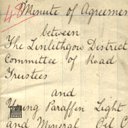 48 Minute of Agreement
between
The Linlithgow District
Committee of Road
Trustees
and
Young Paraffin Light
and Mineral Oil Co